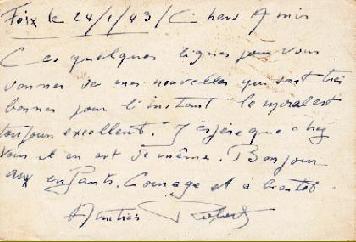 Foix le 24/1/43/ Chers Amis
Ces quelques lignes pour vous
donner de mes nouvelles qui sont très
bonnes pour l'instant le moral est
toujours excellent. J'espère que chez
vous il en est de même. Bonjour
aux enfants. Courage et à bientôt.
Amitiés Robert